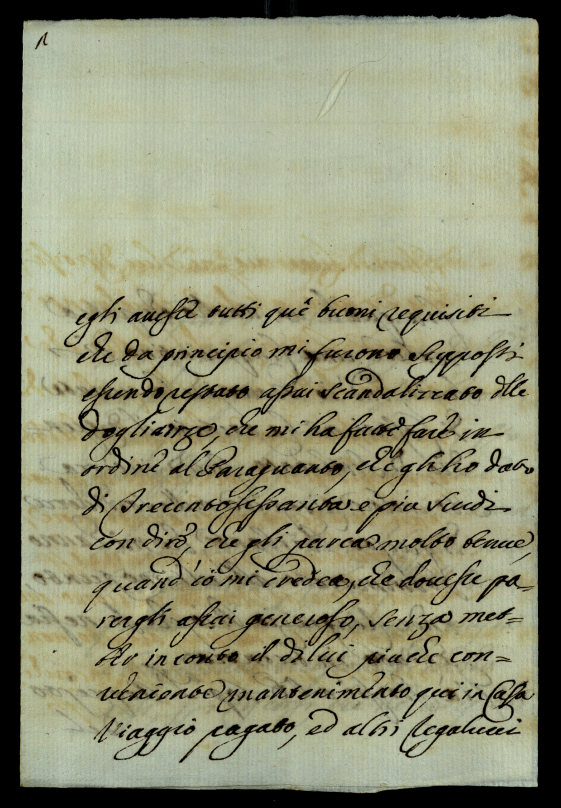 egli avesse tutti que' buoni requisiti
che da principio mi furono supposti
essendo restato assai scandalizzato dlle
doglianze, che mi ha fatte fare in
ordine al Paraguanto, che gli ho dato
di Trecentosessanta e più scudi
con dire, che gli parea molto tenue,
quand' io mi credea, che dovesse pa-
rergli assai generoso, senza met=
ter in conto il di lui più che con=
veniente mantenimento qui in Casa
Viaggio pagato, ed altri regalucci